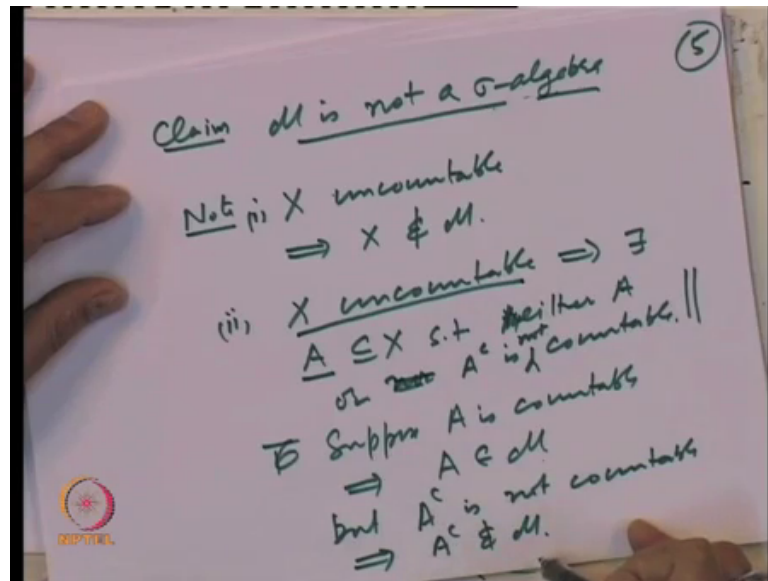 (5)
Claim M is not a σ-algebra
Note (i) X uncountable
⟹ X ∉ M.
(ii) X uncountable ⟹ ∃
A ⊆ X s.t. either A
or A^c is not countable. ||
Suppose A is countable
⟹ A ∈ M
but A^c is not countable
⟹ A^c ∉ M.
NPTEL